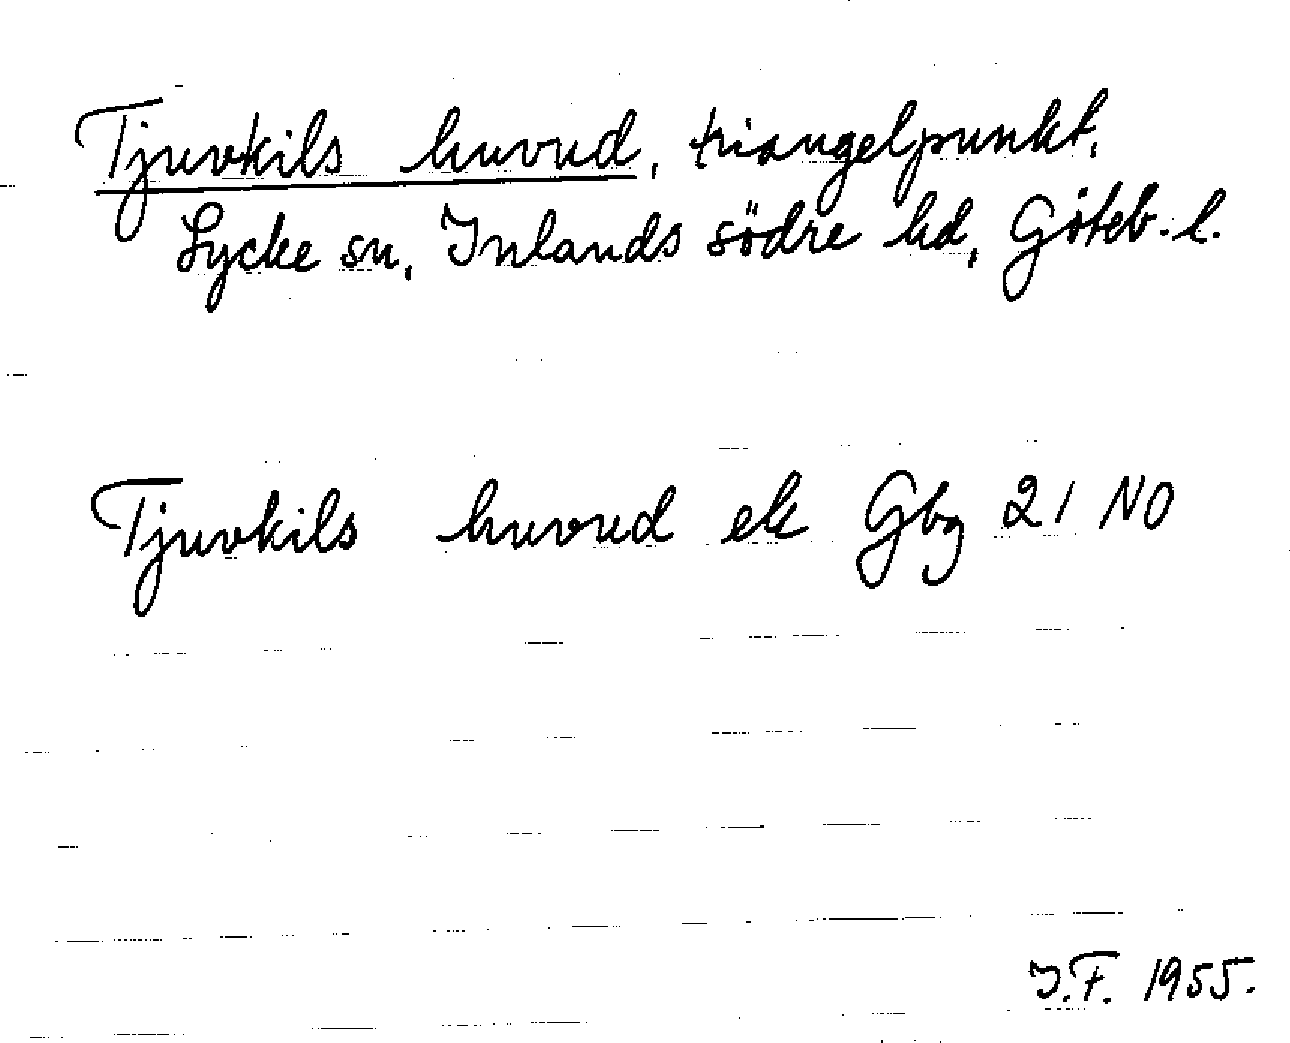 Tjuvkils huvud, triangelpunkt,
Lycke sn, Inlands södre hd, Göteb. l.
Tjuvkils huvud ek Gbg 21 NO
I.F. 1955.